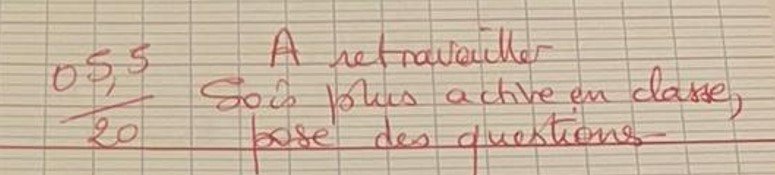 05,5
20
A retravailler
Sois plus active en classe,
pose des questions